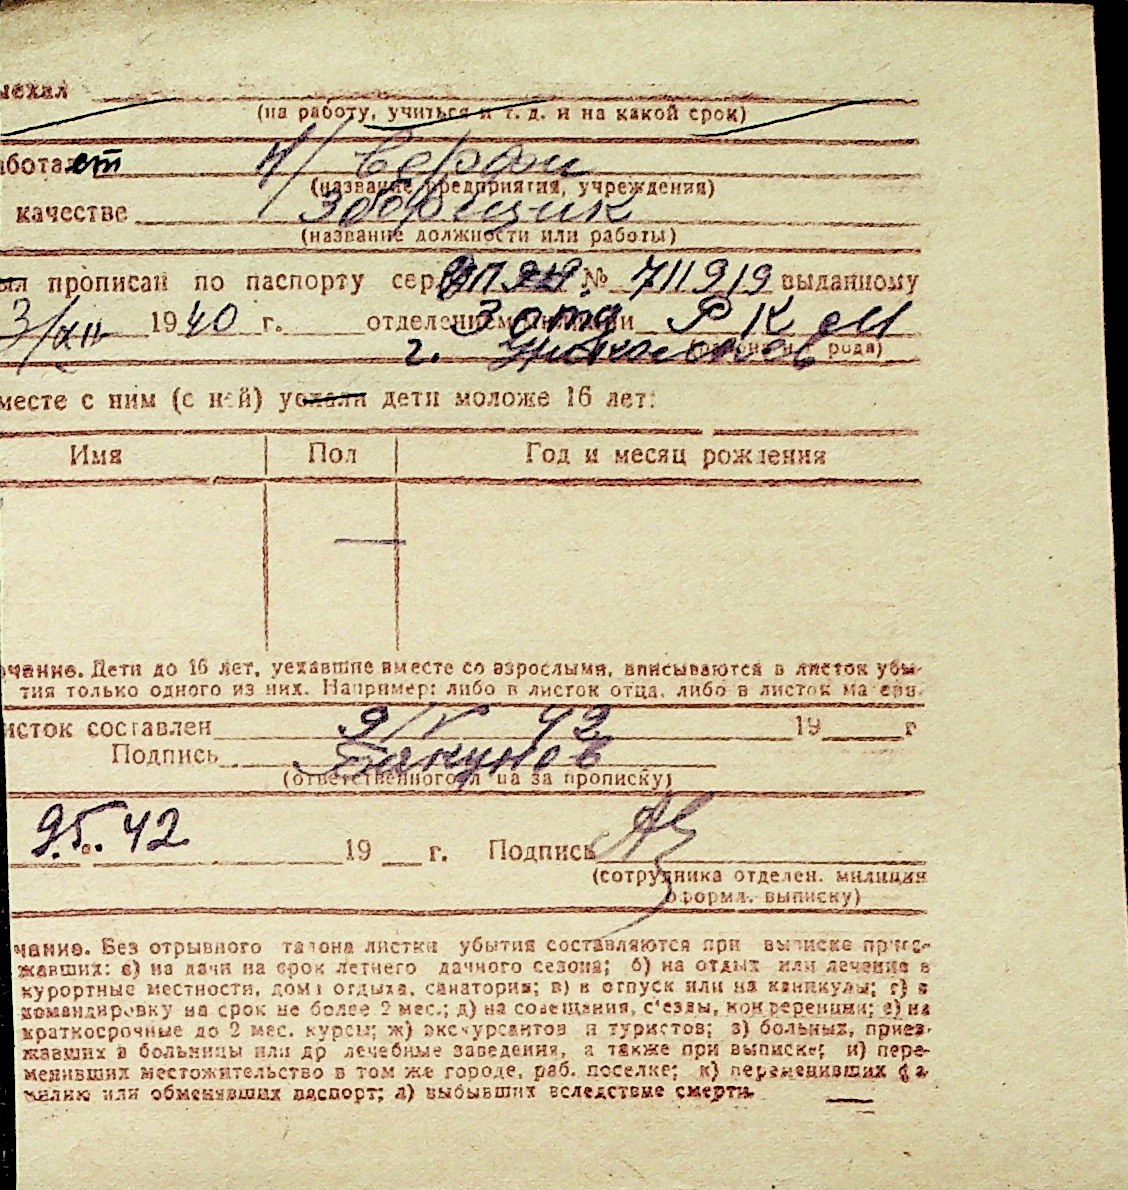 ыехал
(на работу, учиться и т. д. и на какой срок)
аботает
(название предприятия, учреждения)
качестве Зборщик
(название должности или работы)
ыл прописан по паспорту сер. № 711919 выданному
3/XII 1940 г. отделением милиции 3 отд РКМ
г.
месте с ним (с ней) уехали дети моложе 16 лет:
Имя Пол Год и месяц рождения
—
чание. Дети до 16 лет, уехавшие вместе со взрослыми, вписываются в листок убы-
тия только одного из них. Например: либо в листок отца, либо в листок матери.
исток составлен 9/V 42 19 г
Подпись
(ответственного лица за прописку)
9.5. 42 19 г. Подпись
(сотрудника отделен. милиции
оформл. выписку)
чание. Без отрывного талона листки убытия составляются при выписке приез-
жавших: а) на дачи на срок летнего дачного сезона; б) на отдых или лечение в
курортные местности, дома отдыха, санатории; в) в отпуск или на каникулы; г) в
командировку на срок не более 2 мес.; д) на совещания, с'езды, конференции; е) на
краткосрочные до 2 мес. курсы; ж) экскурсантов и туристов; з) больных, приез-
жавших в больницы или др лечебные заведения, а также при выписке; и) пере-
менивших местожительство в том же городе, раб. поселке; к) переменивших фа-
милию или обменявших паспорт; л) выбывших вследствие смерти.